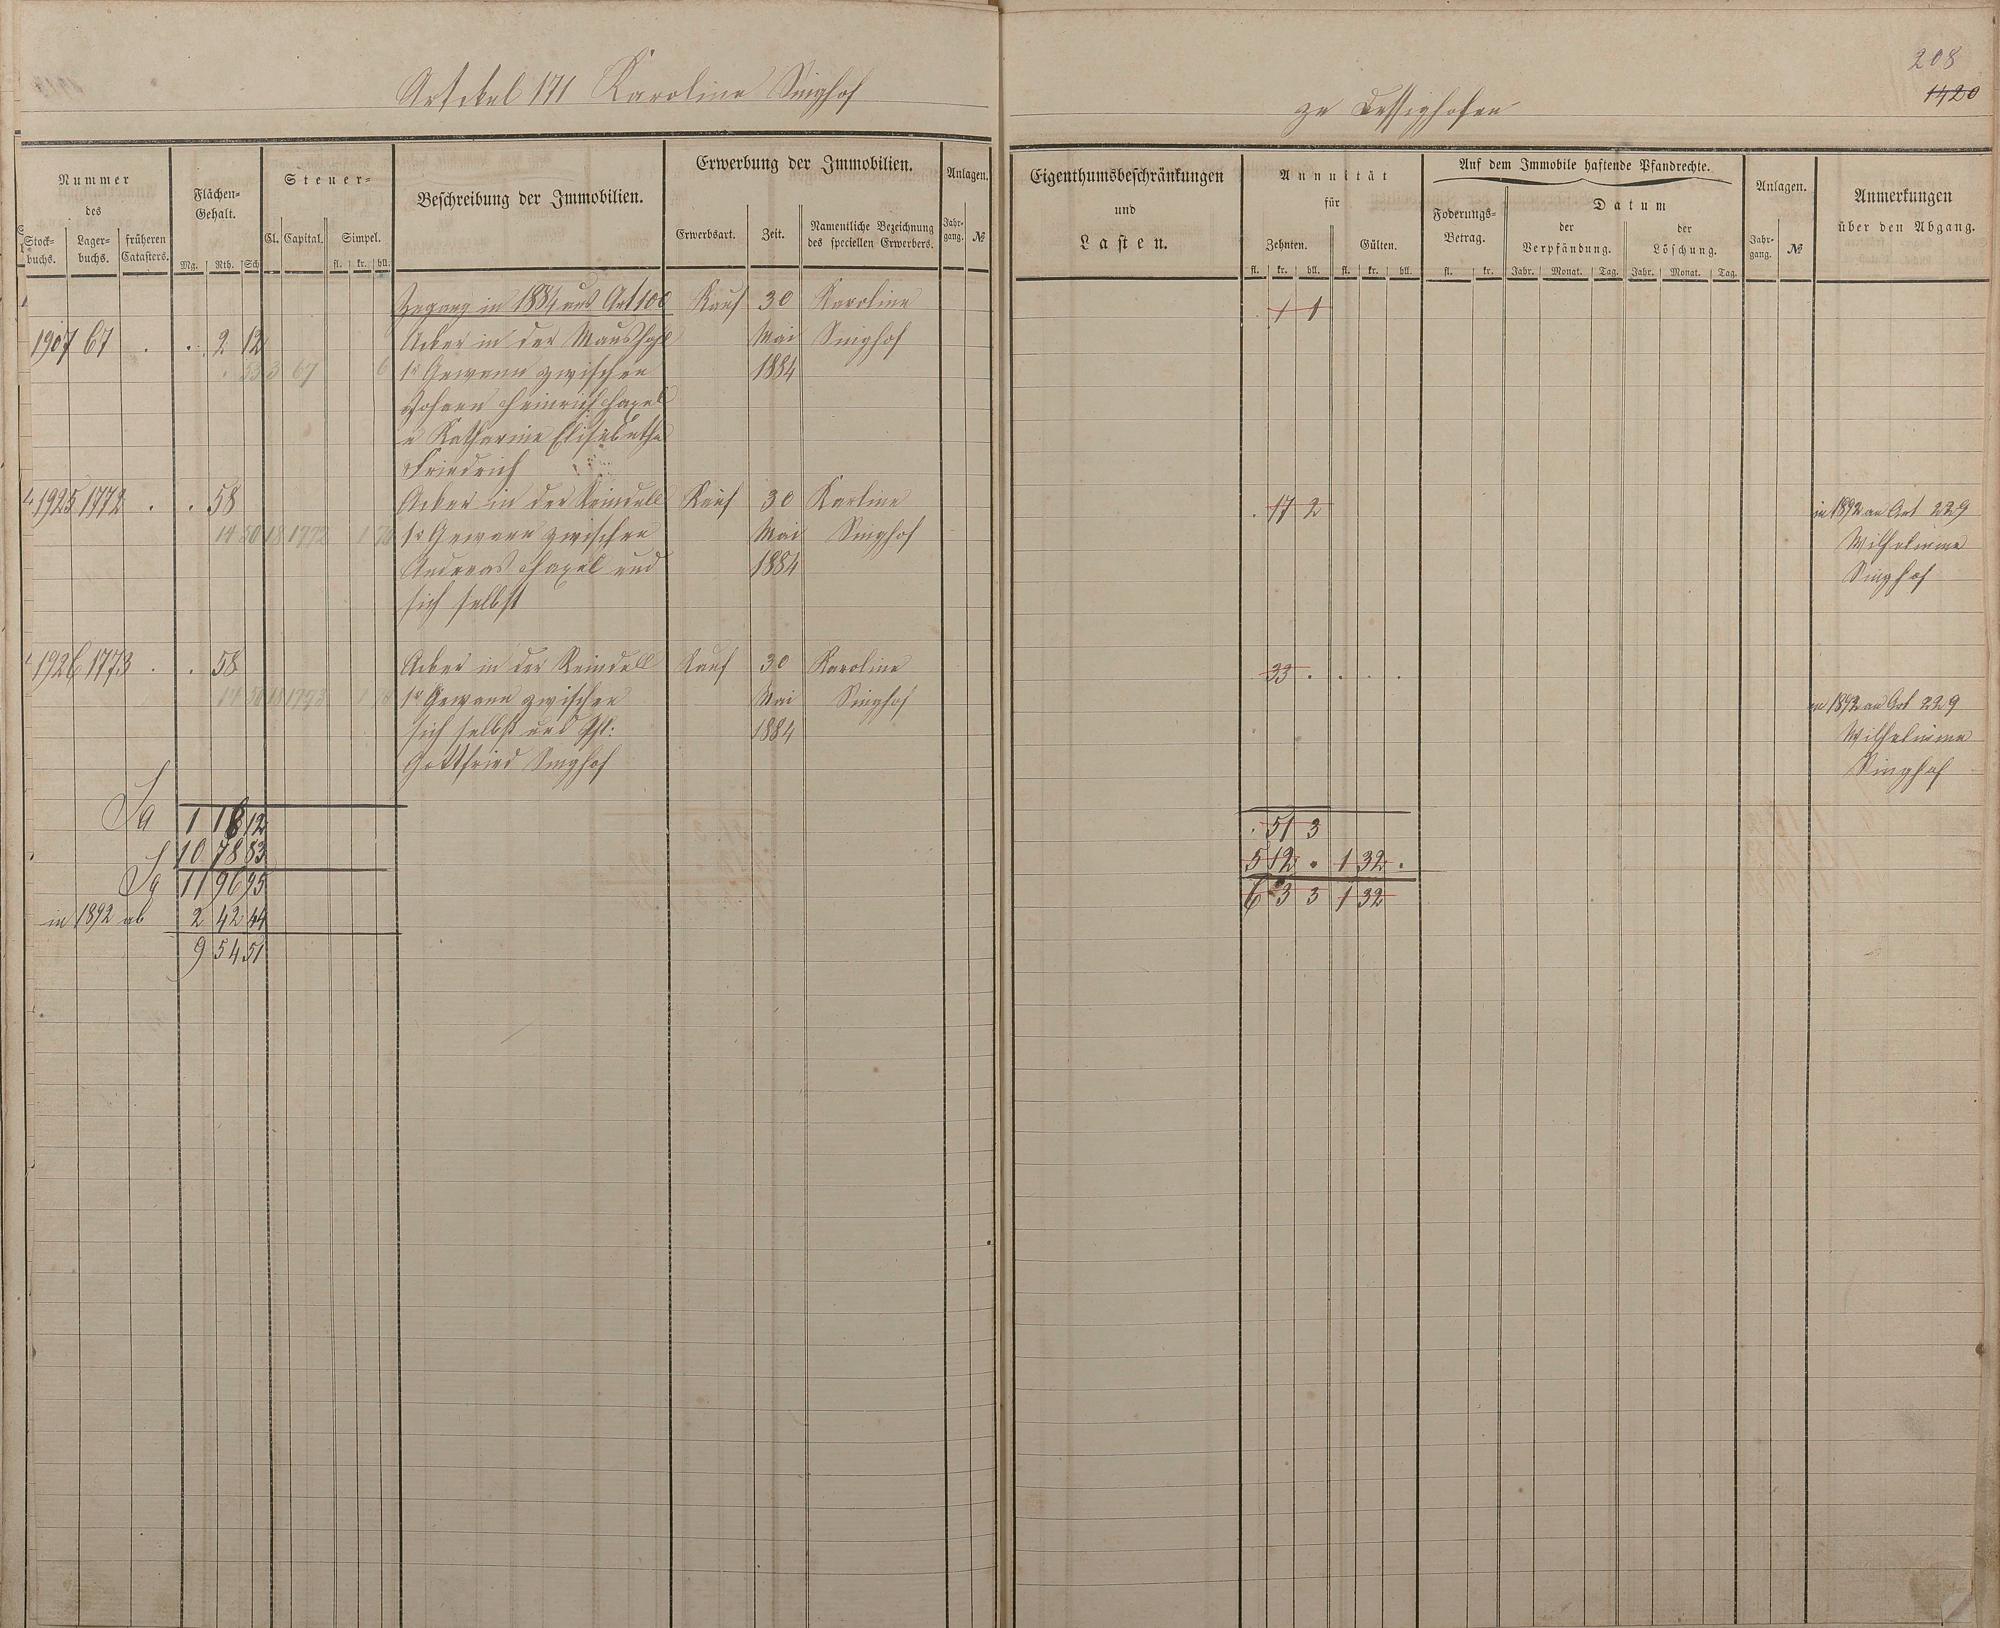 Artickel 171 Karoline Singhof
zu Lessighofen
208
1420
Nummer
des
Stock-
buchs.
Lager-
buchs.
früheren
Catasters.
Flächen-
Gehalt.
Mg. Rth. Sch
Steuer-
Cl. Capital. Simpel.
fl. kr. hll.
Beschreibung der Immobilien.
Erwerbung der Immobilien.
Erwerbsart. Zeit.
Namentliche Bezeichnung
des speciellen Erwerbers.
Anlagen.
Jahr-
gang. №
Eigenthumsbeschränkungen
und
Lasten.
Annuität
für
Zehnten. Gülten.
fl. kr. hll. fl. kr. hll.
Auf dem Immobile haftende Pfandrechte.
Foderungs-
Betrag.
fl. kr.
Datum
der
Verpfändung.
der
Löschung.
Jahr. Monat. Tag. Jahr. Monat. Tag.
Anlagen.
Jahr-
gang. №
Anmerkungen
über den Abgang.
Zugang in 1884 aus Art 100 Kauf 30 Karoline
1907 67 . . 2 12 Acker in der Maushohl Mai Singhof
. 53 3 67 6 1r Gewann zwischen 1884
Johann Heinrich
u Katharine Elisabetha
Friedrich
1 1
1925 1772 . . 58 Acker in der Reindell Kauf 30 Karline . 17 2 in 1892 an Art 229
14 50 18 1772 1 78 1r Gewann zwischen Mai Singhof Wilhelmine
Andreas und 1884 Singhof
sich selbst
1926 1773 . . 58 Acker in der Reindell Kauf 30 Karoline 33 . . . .
14 50 18 1773 1 78 1r Gewann zwischen Mai Singhof in 1892 an Art 229
sich selbst und Phl: 1884 Wilhelmine
Gottfried Singhof Singhof
Sa 1 18 12 . 51 3
10 78 83 5 12 . 1 32 .
Sa 11 96 95 6 3 3 1 32
in 1892 ab 2 42 44
9 54 51